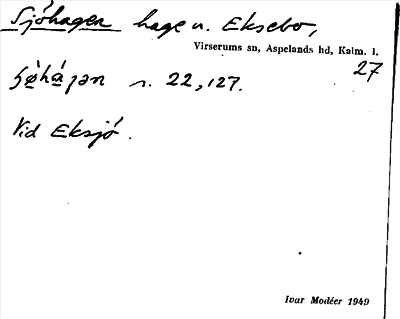 Sjöhagen hage u. Eksebo,
Virserums sn, Aspelands hd, Kalm. l.
27
s. 22, 127.
Vid Eksjö.
Ivar Modéer 1949